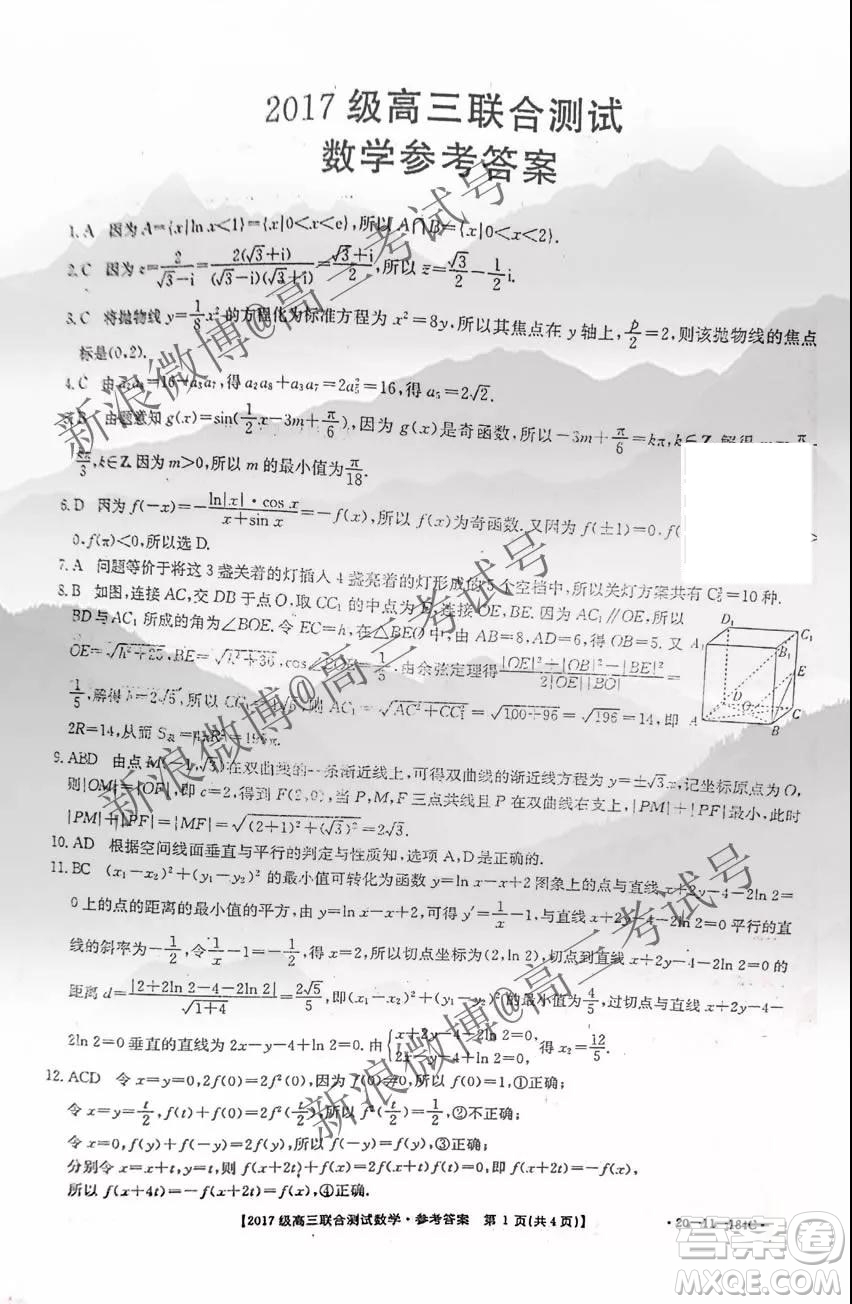 2017 级高三联合测试
数学参考答案
1. A 因为 A={x|ln x<1}={x|0<x<e},所以 A∩B={x|0<x<2}.
2. C 因为 z=2/(√3-i)=2(√3+i)/((√3-i)(√3+i))=(√3+i)/2,所以 z̄=√3/2-1/2i.
3. C 将抛物线 y=1/8x²的方程化为标准方程为 x²=8y,所以其焦点在 y 轴上,p/2=2,则该抛物线的焦点
标是(0,2).
4. C 由 a₂a₈=16-a₃a₇,得 a₂a₈+a₃a₇=2a₅²=16,得 a₅=2√2.
5. B 由题意知 g(x)=sin(1/2x-3m+π/6),因为 g(x)是奇函数,所以-3m+π/6=kπ,k∈Z,解得 m=π/18-
kπ/3,k∈Z.因为 m>0,所以 m 的最小值为π/18.
6. D 因为 f(-x)=-(ln|x|·cos x)/(x+sin x)=-f(x),所以 f(x)为奇函数.又因为 f(±1)=0,f(
>
0,f(π)<0,所以选 D.
7. A 问题等价于将这 3 盏关着的灯插入 4 盏亮着的灯形成的 5 个空档中,所以关灯方案共有 C₅³=10 种.
8. B 如图,连接 AC,交 DB 于点 O,取 CC₁ 的中点为 E,连接 OE,BE.因为 AC₁∥OE,所以
BD 与 AC₁ 所成的角为∠BOE.令 EC=h,在△BEO 中,由 AB=8,AD=6,得 OB=5.又
OE=√(h²+25),BE=√(h²+36),cos∠BOE=1/5.由余弦定理得(|OE|²+|OB|²-|BE|²)/(2|OE||BO|)=
1/5,解得 h=2√6,所以 CC₁=4√6,则 AC₁=√(AC²+CC₁²)=√(100+96)=√196=14,即
2R=14,从而 S球=4πR²=196π.
A₁ D₁ C₁ B₁ E D O C A B
9. ABD 由点 M(-1,√3)在双曲线的一条渐近线上,可得双曲线的渐近线方程为 y=±√3x,记坐标原点为 O,
则|OM|=|OF|,即 c=2,得到 F(2,0),当 P,M,F 三点共线且 P 在双曲线右支上,|PM|+|PF|最小,此时
|PM|+|PF|=|MF|=√((2+1)²+(√3)²)=2√3.
10. AD 根据空间线面垂直与平行的判定与性质知,选项 A,D 是正确的.
11. BC (x₁-x₂)²+(y₁-y₂)² 的最小值可转化为函数 y=ln x-x+2 图象上的点与直线 x+2y-4-2ln 2=
0 上的点的距离的最小值的平方,由 y=ln x-x+2,得 y′=1/x-1,与直线 x+2y-4-2ln 2=0 平行的直
线的斜率为-1/2,令1/x-1=-1/2,得 x=2,所以切点坐标为(2,ln 2),切点到直线 x+2y-4-2ln 2=0 的
距离 d=|2+2ln 2-4-2ln 2|/√(1+4)=2√5/5,即(x₁-x₂)²+(y₁-y₂)² 的最小值为4/5,过切点与 x+2y-4-
2ln 2=0 垂直的直线为 2x-y-4+ln 2=0.由{x+2y-4-2ln 2=0, 2x-y-4+ln 2=0, 得 x₂=12/5.
12. ACD 令 x=y=0,2f(0)=2f²(0),因为 f(0)≠0,所以 f(0)=1,所以①正确;
令 x=y=t/2,f(t)+f(0)=2f²(t/2),所以 f²(t/2)=1/2,②不正确;
令 x=0,f(y)+f(-y)=2f(0)f(y),所以 f(-y)=f(y),③正确;
分别令 x=x+t,y=t,则 f(x+2t)+f(x)=2f(x+t)f(t)=0,所以 f(x+2t)=-f(x),
所以 f(x+4t)=-f(x+2t)=f(x),④正确.
【2017 级高三联合测试数学·参考答案 第 1 页(共 4 页)】
·20-11-184C·
新浪微博@高三考试号
新浪微博@高三考试号
新浪微博@高三考试号
答案卷
MXQE.COM